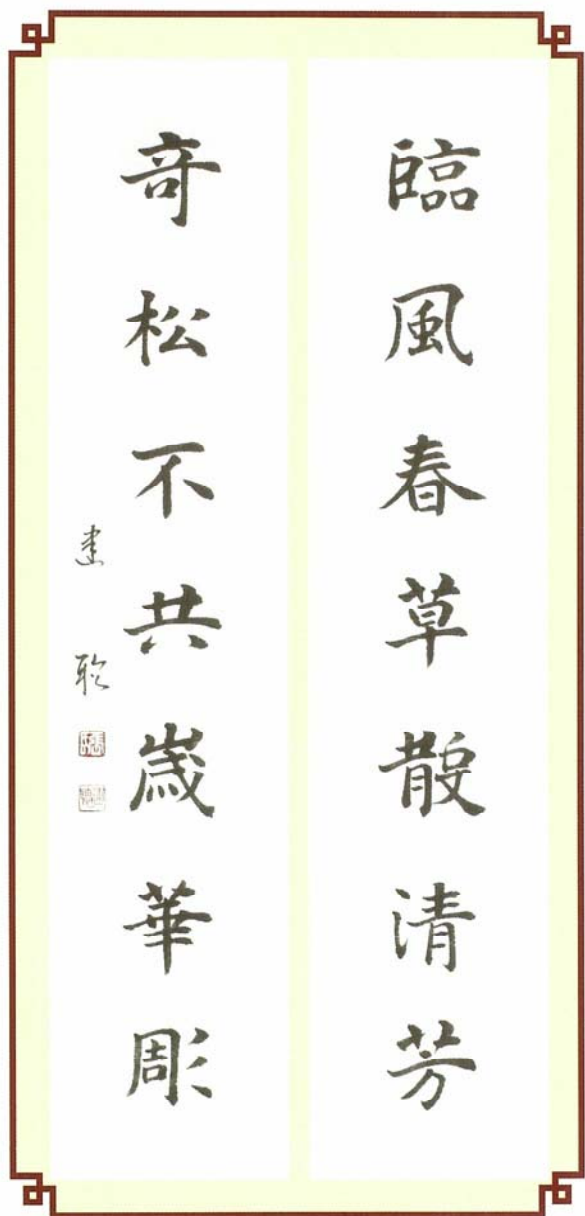 臨風春草散清芳
奇松不共歲華彫
建聆